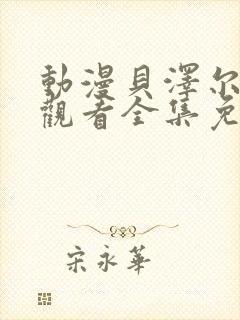 動漫貝澤尔
觀看全集免
宋永華